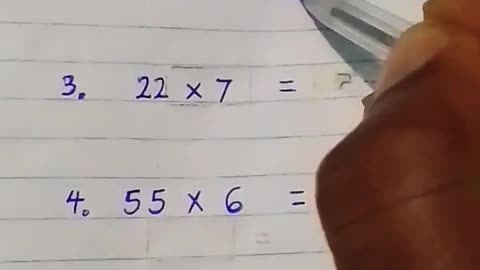 3. 22 x 7 = ?
4. 55 x 6 =
=